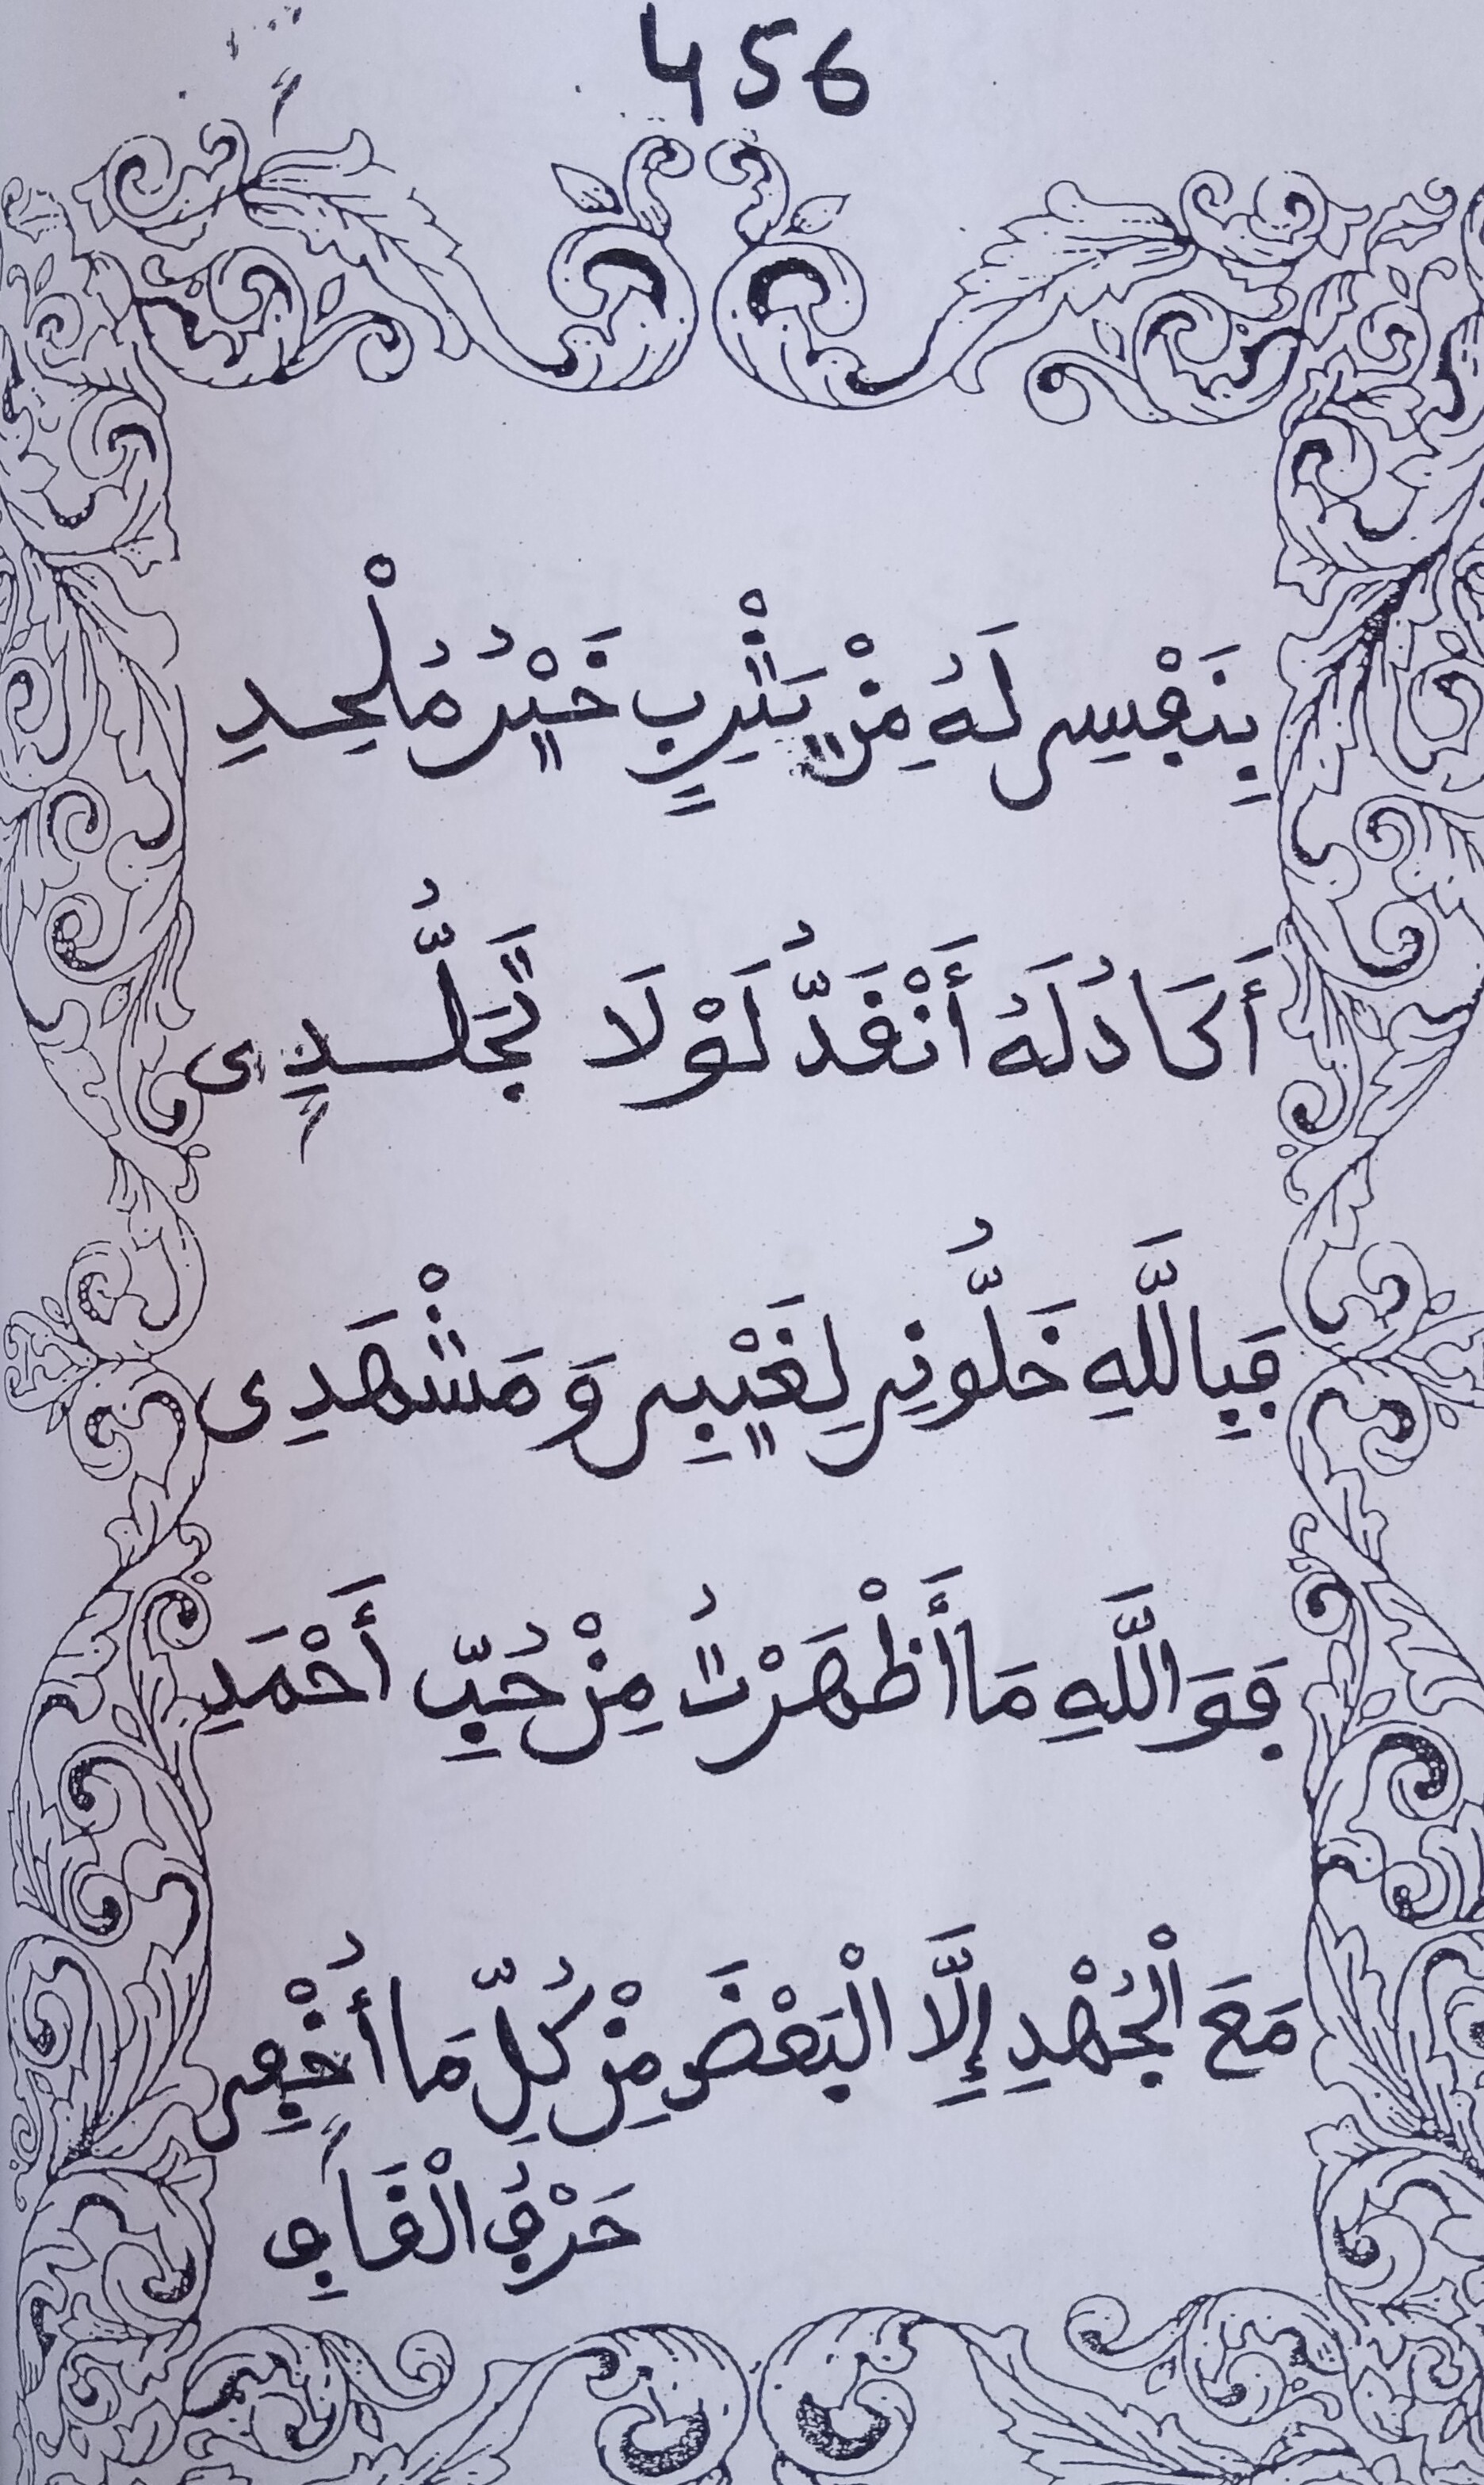 456
بِنَفْسِي لَهُ مِنْ يَثْرِبٍ خَيْرُ مُلْحِدِ
أَكَادُ لَهُ أَنْقَدُّ لَوْلَا تَجَلُّدِي
فَبِاللَّهِ خَلُّونِي لِغَيْبِي وَمَشْهَدِي
فَوَاللَّهِ مَا أَظْهَرْتُ مِنْ حُبِّ أَحْمَدِ
مَعَ الْجُهْدِ إِلَّا الْبَعْضَ مِنْ كُلِّ مَا أُخْفِي
حَرْفُ الْقَافِ